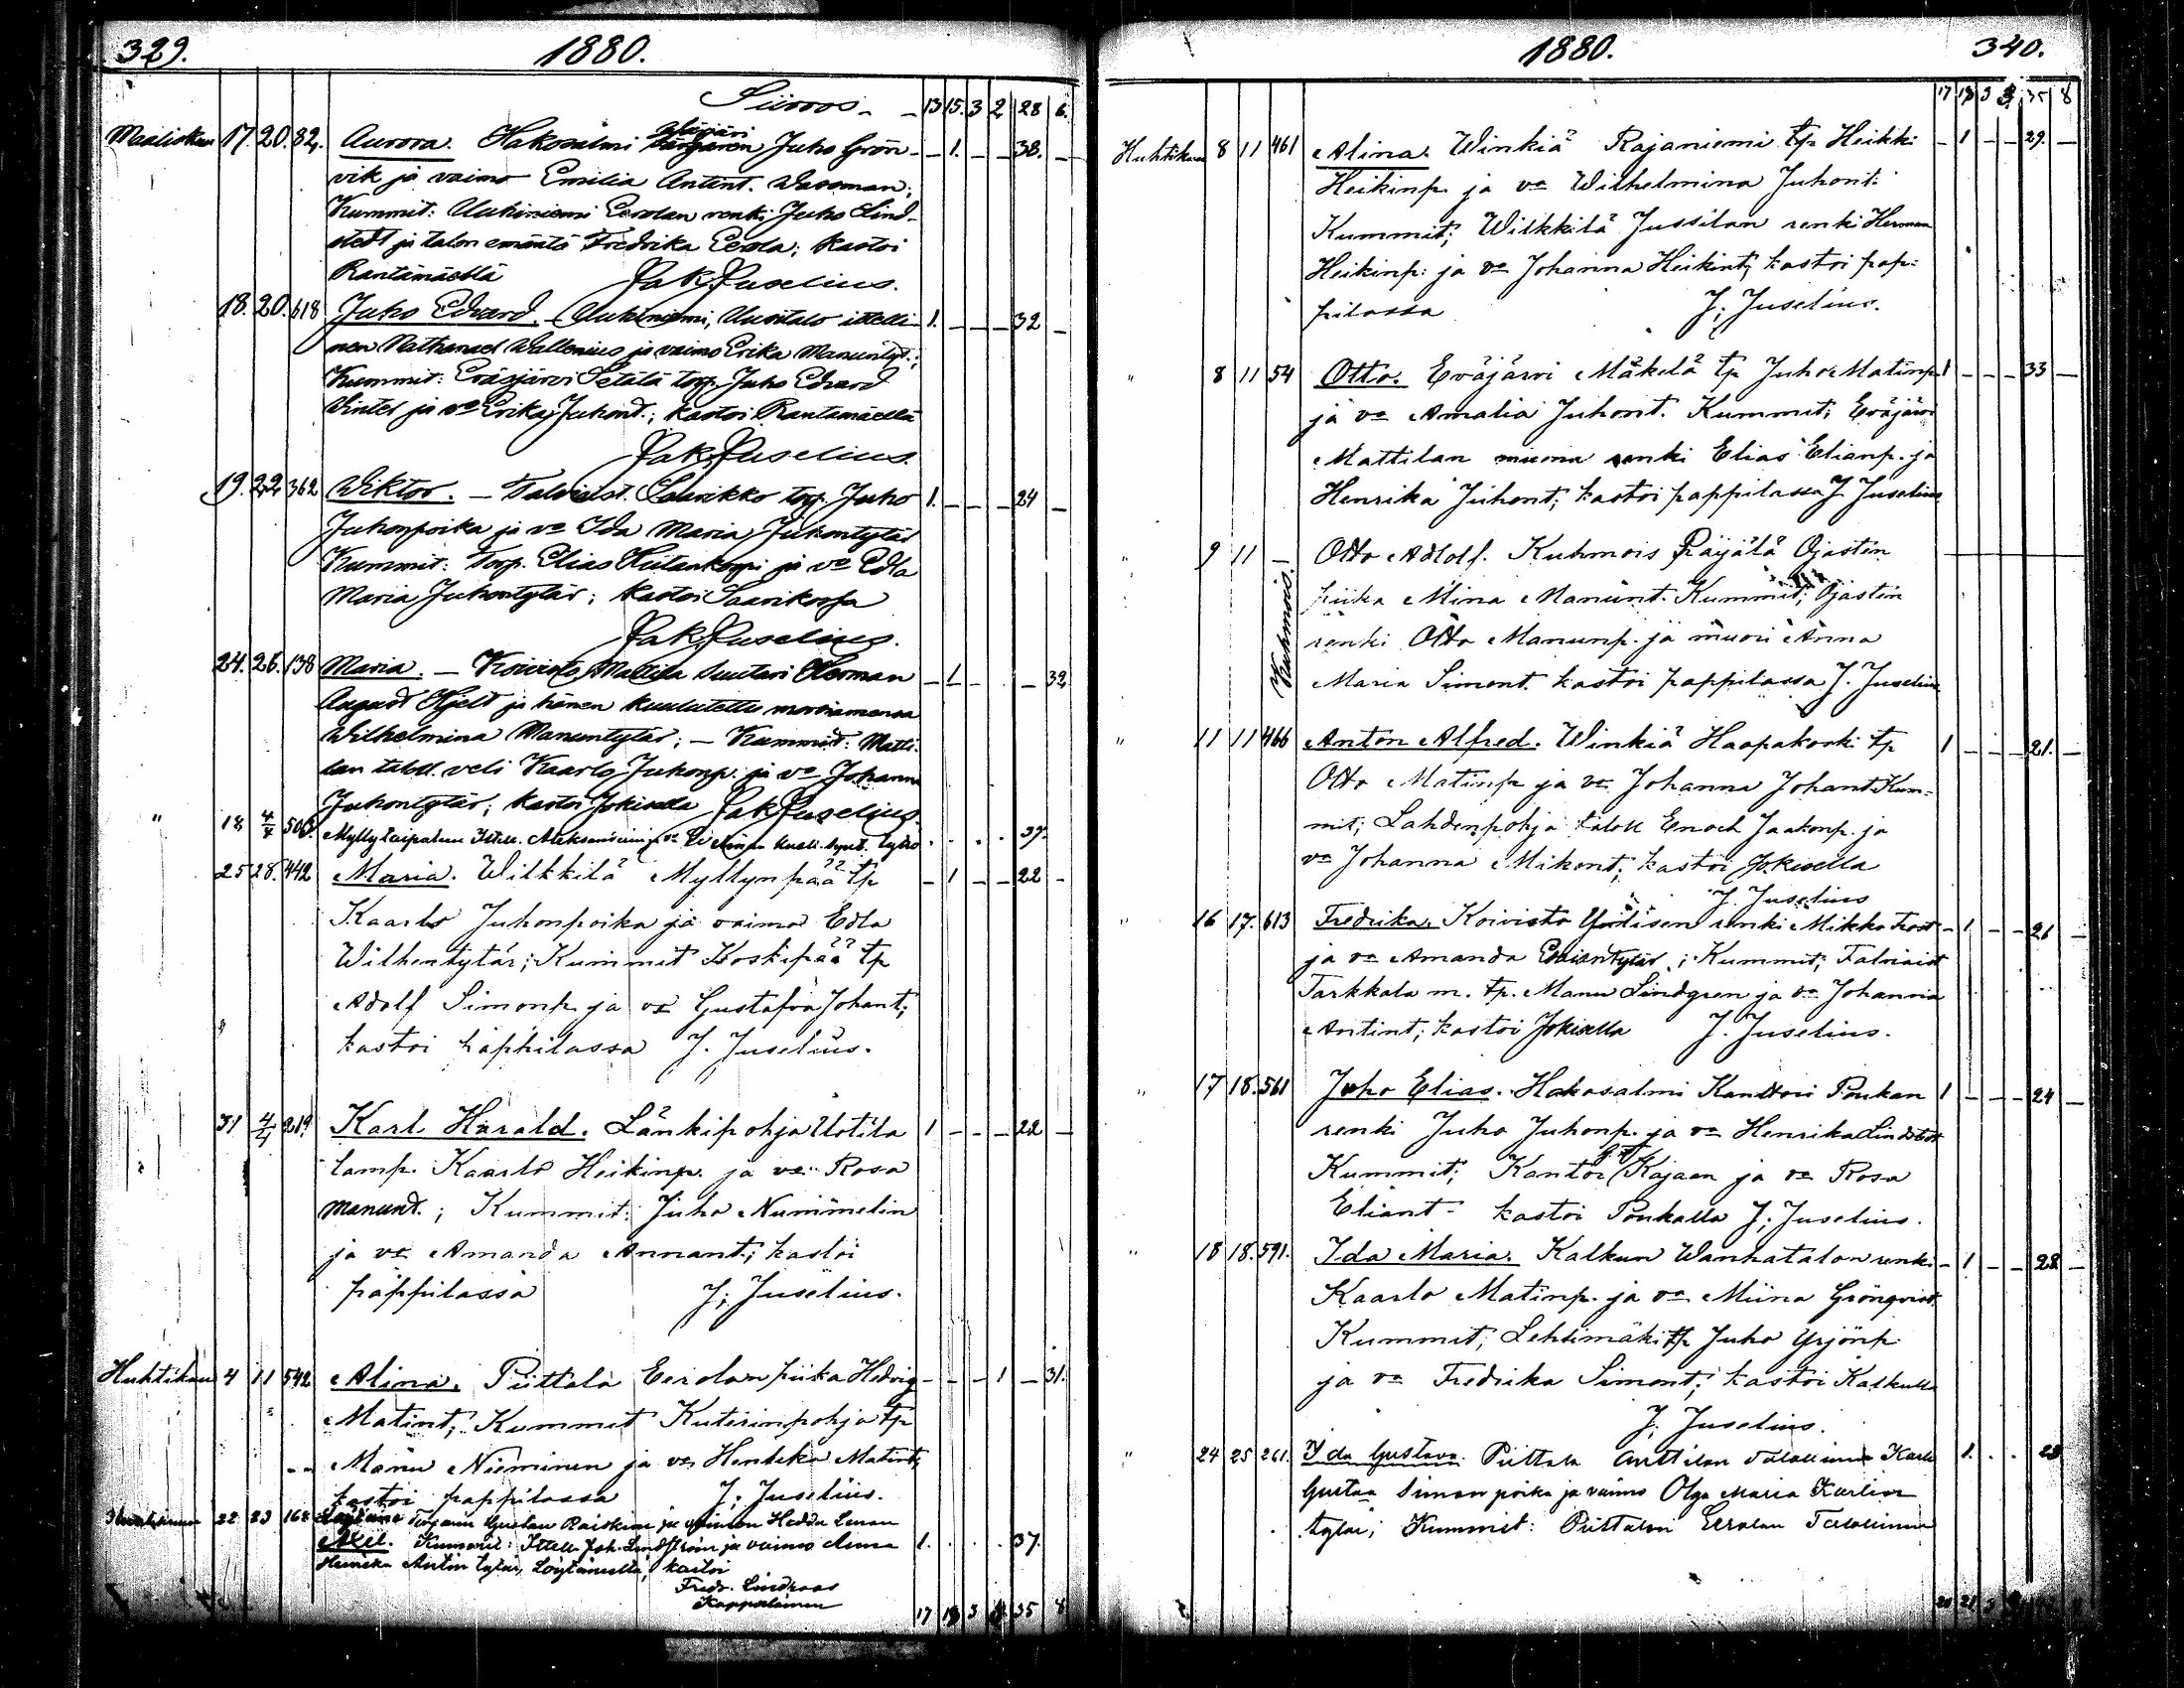 329. 1880.
Siirros - - 13 15. 3 2 28 6.
Maaliskuu 17. 20. 82. Aurora. Hakosalmi Juho Grön- - 1. - - 38. -
vik ja vaimo Emilia Antint. Wassman;
Kummit: Uukiniemi Eerolan renki Juho Lind-
stedt ja talon emäntä Fredrika Eerola; kastoi
Rantamäellä Jak. Juselius.
18. 20. 618 Juho Edvard. - Uukiniemi, Uusitalo ittelli- 1. - - - 32 -
nen Nathanael Wallenius ja vaimo Erika Manuntyt.;
Kummit: Eräsjärvi Setälä torp. Juho Edvard
Winter ja vo Erika Juhont.; kastoi Rantamäellä
Jak. Juselius.
19. 22 362 Wiktor. - Talviaist. Laurikko torp. Juho 1. - - - 24 -
Juhonpoika ja vo Ida Maria Juhontytär
Kummit: Torp. Elias Hiitankorpi ja vo Edla
Maria Juhontytär; kastoi Saarikorpa
Jak. Juselius.
24. 26. 138 Maria. - Koivisto Mattila suutari Herman - 1 - - 32
August Hjelt ja hänen kuulutettu morsiamensa
Wilhelmina Manuntytär; - Kummit: Matti-
lan talol. veli Kaarlo Juhonp. ja vo Johanna
Juhontytär; kastoi Jokisella Jak. Juselius.
" 18 4/4 503. Myllytaipaleen Ittell. Aleksanterin ja vo kuoll. synt. tytto . . . . 37.
25 28. 442 Maria. Wilkkilä Myllynpää tp - 1 - - 22 -
Kaarlo Juhonpoika ja vaimo Edla
Wilhentytär; Kummit Koskipää tp
Adolf Simonp. ja vo Gustafva Johant;
kastoi pappilassa J. Juselius.
31 4/4 219 Karl Harald. Länkipohja Uotila 1 - - - 22 -
lamp. Kaarlo Heikinp. ja vo Rosa
Manunt.; Kummit: Juho Nummelin
ja vo Amanda Annant.; kastoi
pappilassa J. Juselius.
Huhtikuu 4 11 542 Alina. Piittala Eerolan piika Hedvig - - - 1 - 31.
Matint; Kummit Kuterinpohja tp
Manu Nieminen ja vo Henrika Matint;
kastoi pappilassa J. Juselius.
22 23 168 Torparin Gustav Raiskion ja vaimon Hedda Lenan
Axel. Kummit: Ittell. Joh. Lindström ja vaimo Anna 1. . . . 37.
Henrika Antin tytär, Löytäneeltä; kastoi
Fredr. Lindroos
Kappalainen
17 19 3 35 8

1880. 340.
17 19 3 3 35 8
Huhtikuu 8 11 461 Alina. Winkiä Rajaniemi tp Heikki - 1 - - 29. -
Heikinp. ja vo Wilhelmina Juhont:
Kummit; Wilkkilä Jussilan renki Herman
Heikinp: ja vo Johanna Heikint; kastoi pap-
pilassa J. Juselius.
" 8 11 54 Otto. Eväjärvi Mäkelä tp Juho Matinp. 1 - - - 33 -
ja vo Amalia Juhont. Kummit; Eväjärvi
Mattilan muona renki Elias Elianp. ja
Henrika Juhont; kastoi pappilassa J. Juselius
" 9 11 - Kuhmois. Otto Adolf. Kuhmois Räyälä Ojastin
piika Mina Manunt. Kummit; Ojastin
renki Otto Manunp. ja muori Anna
Maria Simont. kastoi pappilassa J. Juselius
" 11 11 466 Anton Alfred. Winkiä Haapakoski tp 1 - - - 21. -
Otto Matinp. ja vo Johanna Johant. Kum-
mit; Lahdenpohja talok Enoch Jaakonp. ja
vo Johanna Mikont; kastoi Jokisella
J. Juselius
" 16 17. 613 Fredrika. Koivisto renki Mikko Frost - 1 - - 26 -
ja vo Amanda ; Kummit; Talviaist
Tarkkala m. tp. Manu Lindgren ja vo Johanna
Antint; kastoi Jokisella J. Juselius.
" 17 18. 561 Juho Elias. Hakosalmi Kanttori Poukan 1 - - - 24 -
renki Juho Juhonp. ja vo Henrika Lindstedt
Kummit; Kantor Kajaan ja vo Rosa
Eliant - kastoi Poukalla J. Juselius.
" 18 18. 591. Ida Maria. Kalkun Wanhatalon renki - 1 - - 28 -
Kaarlo Matinp. ja vo Miina Grönqvist.
Kummit; Lehtimäki tp Juho Yrjönp
ja vo Fredrika Simont; kastoi Kalkulla
J. Juselius.
" 24 25 261. Ida Gustava. Piittala Anttilan Talollinen Karl 1. . . 28
Gustaa Simon poika ja vaimo Olga Maria Karlin
tytär; Kummit: Piittalan Eerolan Talollinen
20 21